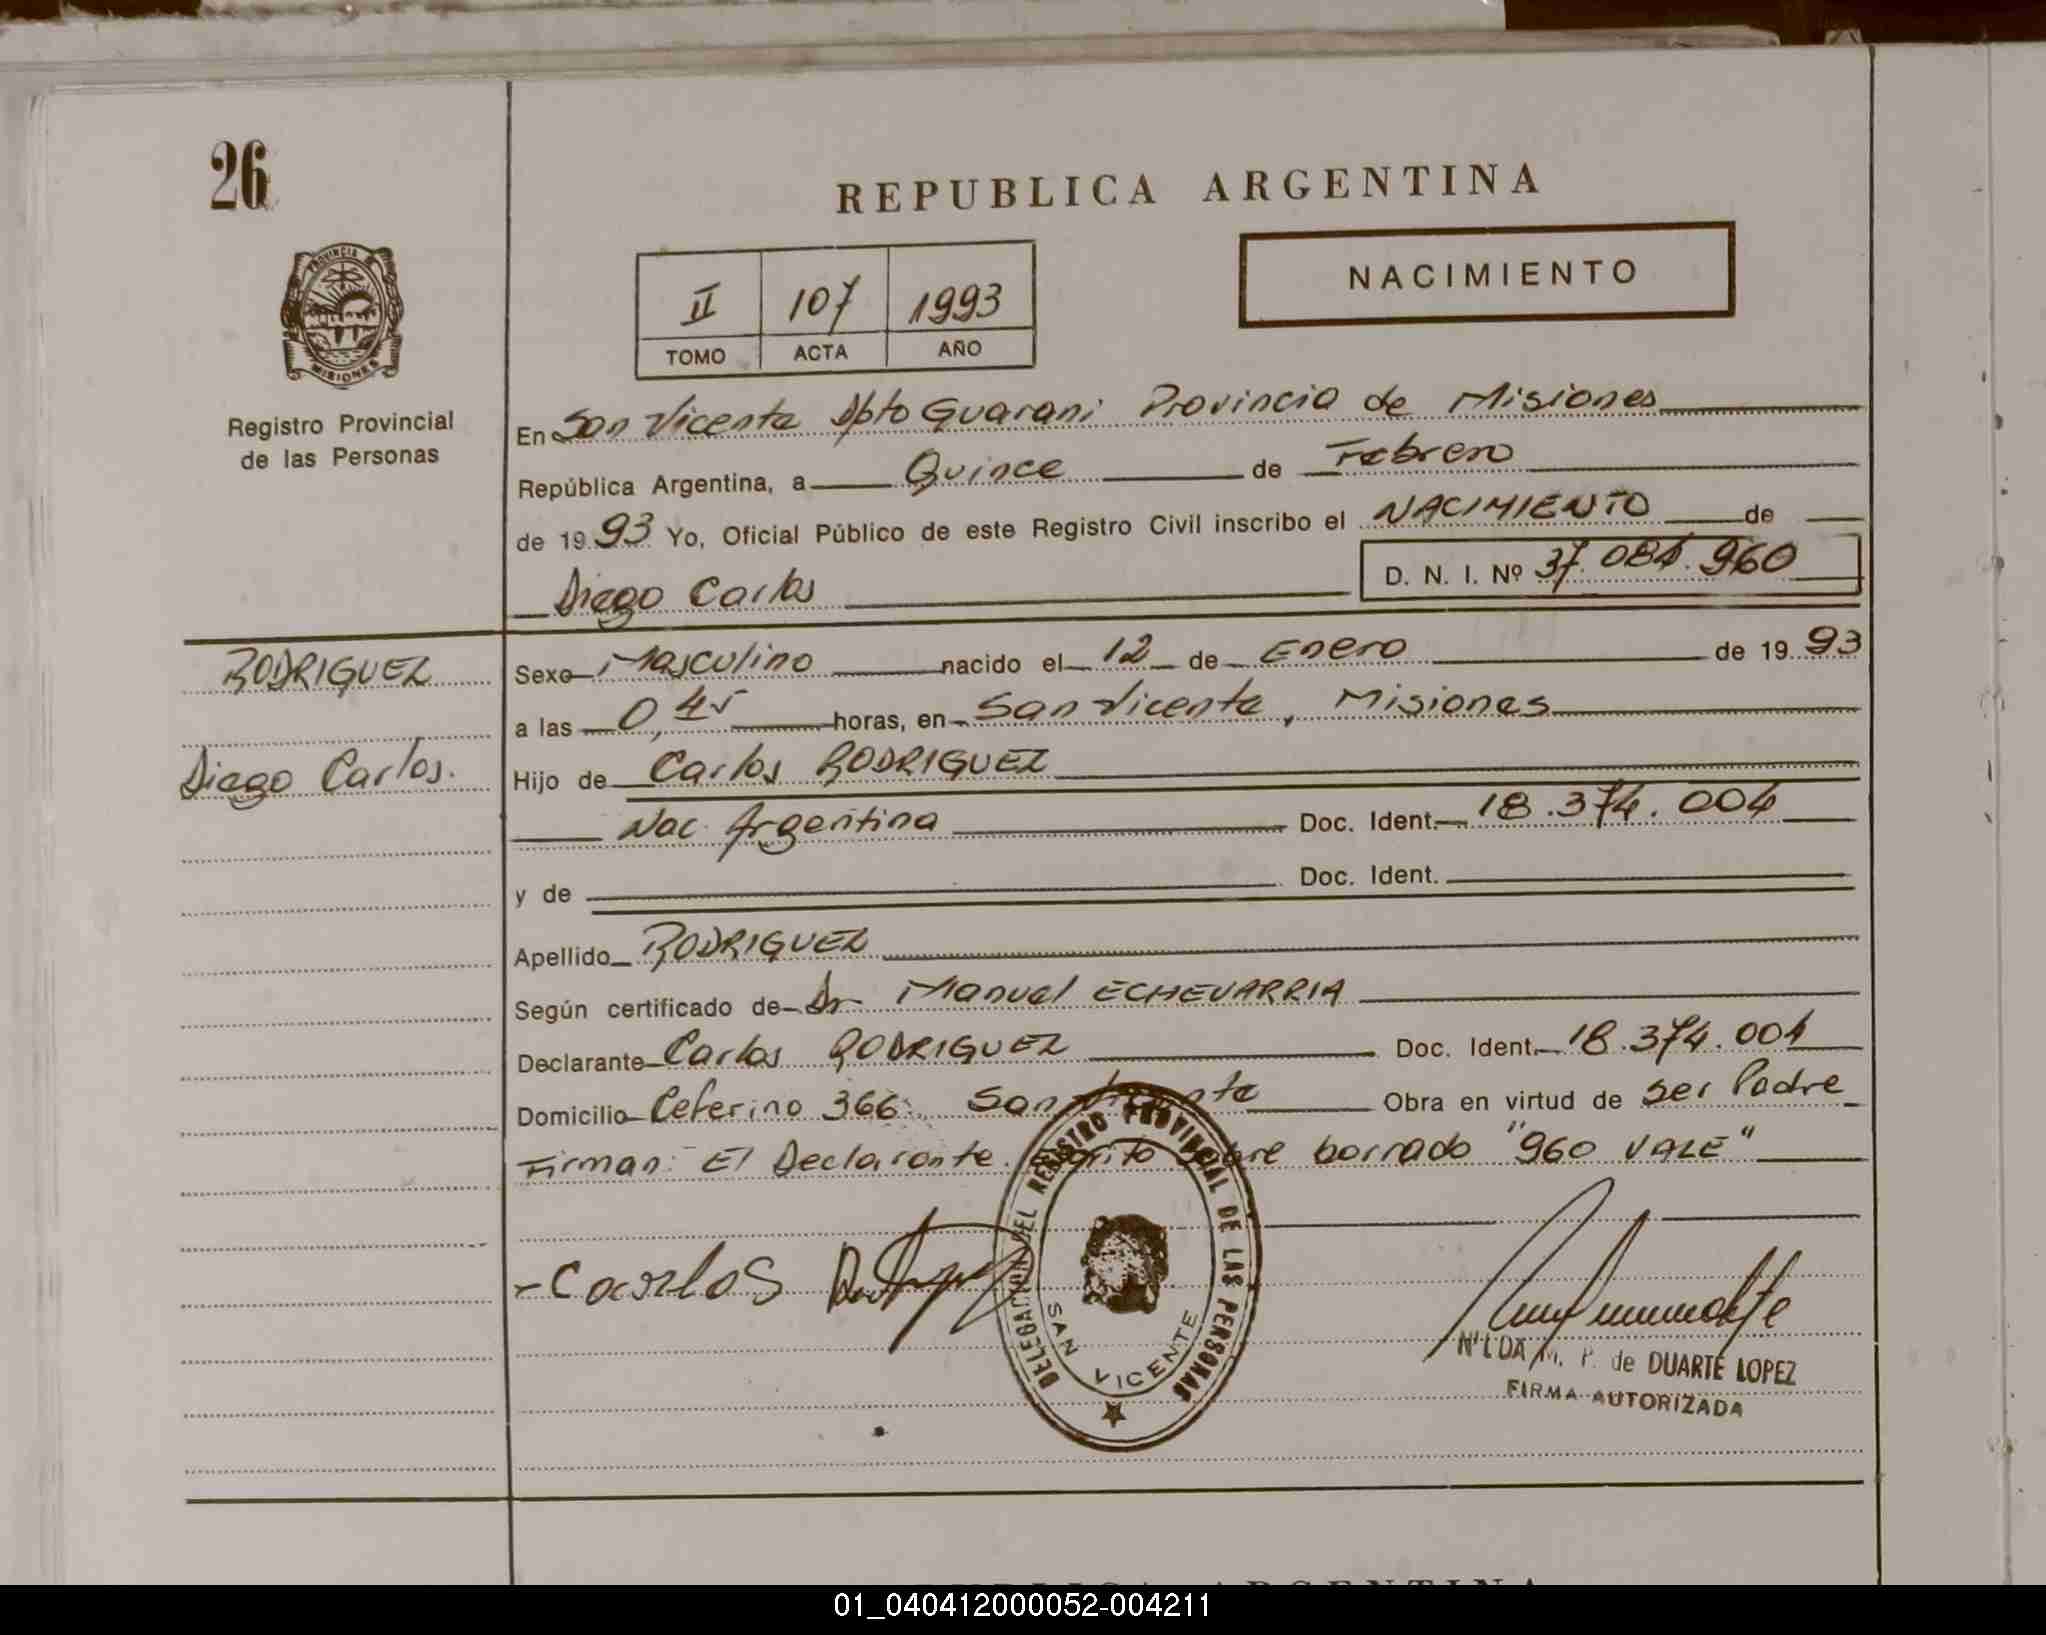 26
REPUBLICA ARGENTINA
NACIMIENTO
II 107 1993
TOMO ACTA AÑO
PROVINCIA DE MISIONES
Registro Provincial
de las Personas
En San Vicente Dpto Guarani Provincia de Misiones
República Argentina, a Quince de Febrero
de 1993 Yo, Oficial Público de este Registro Civil inscribo el NACIMIENTO de
Diego Carlos D. N. I. Nº 37.084.960
RODRIGUEZ
Diego Carlos.
Sexo Masculino nacido el 12 de Enero de 1993
a las 0,45 horas, en San Vicente, Misiones
Hijo de Carlos RODRIGUEZ
Nac. Argentina Doc. Ident. 18.374.004
y de Doc. Ident.
Apellido RODRIGUEZ
Según certificado de Dr Manuel ECHEVARRIA
Declarante Carlos RODRIGUEZ Doc. Ident. 18.374.004
Domicilio Ceferino 366 San Vicente Obra en virtud de ser Padre
Firman: El Declarante. Escrito sobre borrado "960 VALE"
Carlos
DELEGACION DEL REGISTRO PROVINCIAL DE LAS PERSONAS
SAN VICENTE
NILDA M. P. de DUARTE LOPEZ
FIRMA AUTORIZADA
01_040412000052-004211